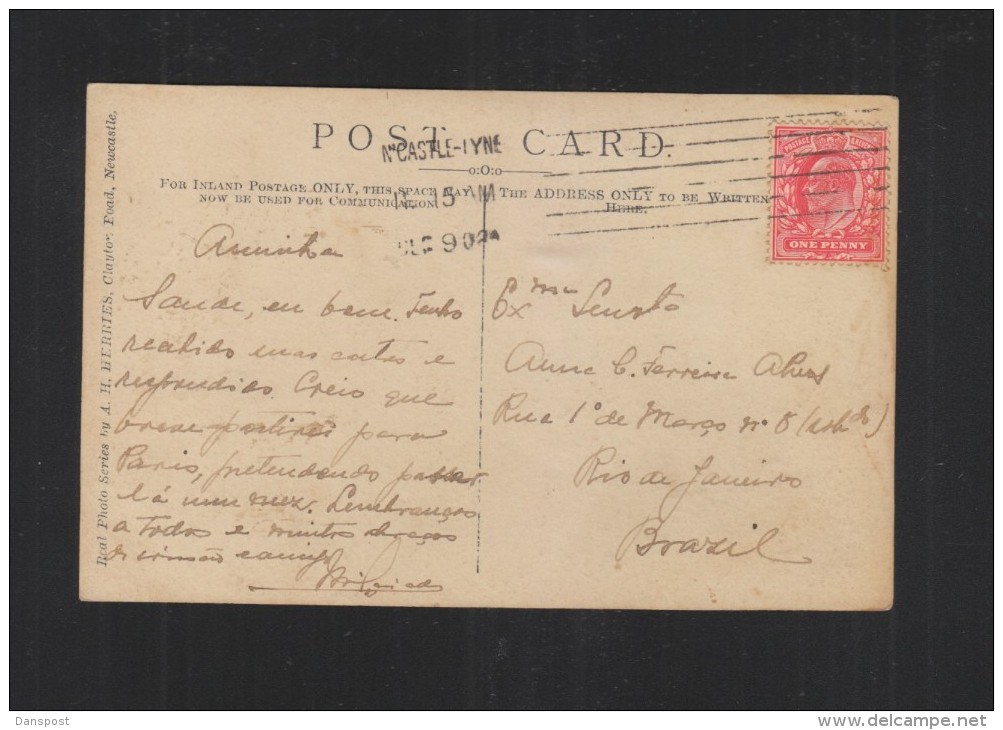 POST CARD.
N'CASTLE-TYNE
15 AM
9 09
POSTAGE
ONE PENNY
FOR INLAND POSTAGE ONLY, THIS SPACE MAY
NOW BE USED FOR COMMUNICATION
THE ADDRESS ONLY TO BE WRITTEN
HERE.
Real Photo Series by A. H. HERRIES, Clayton Road, Newcastle.
Anninha
Saude, eu bem. Tenho
recebido suas cartas e
respondido. Creio que
breve partirei para
Paris, pretendendo passar
lá num mez. Lembranças
a todos e muitos abraços
do irmão e amigo
Exma
Anna C. Ferreira Alves
Rua 1º de Março nº 8
Rio de Janeiro
Brazil
Danspost
www.delcampe.net